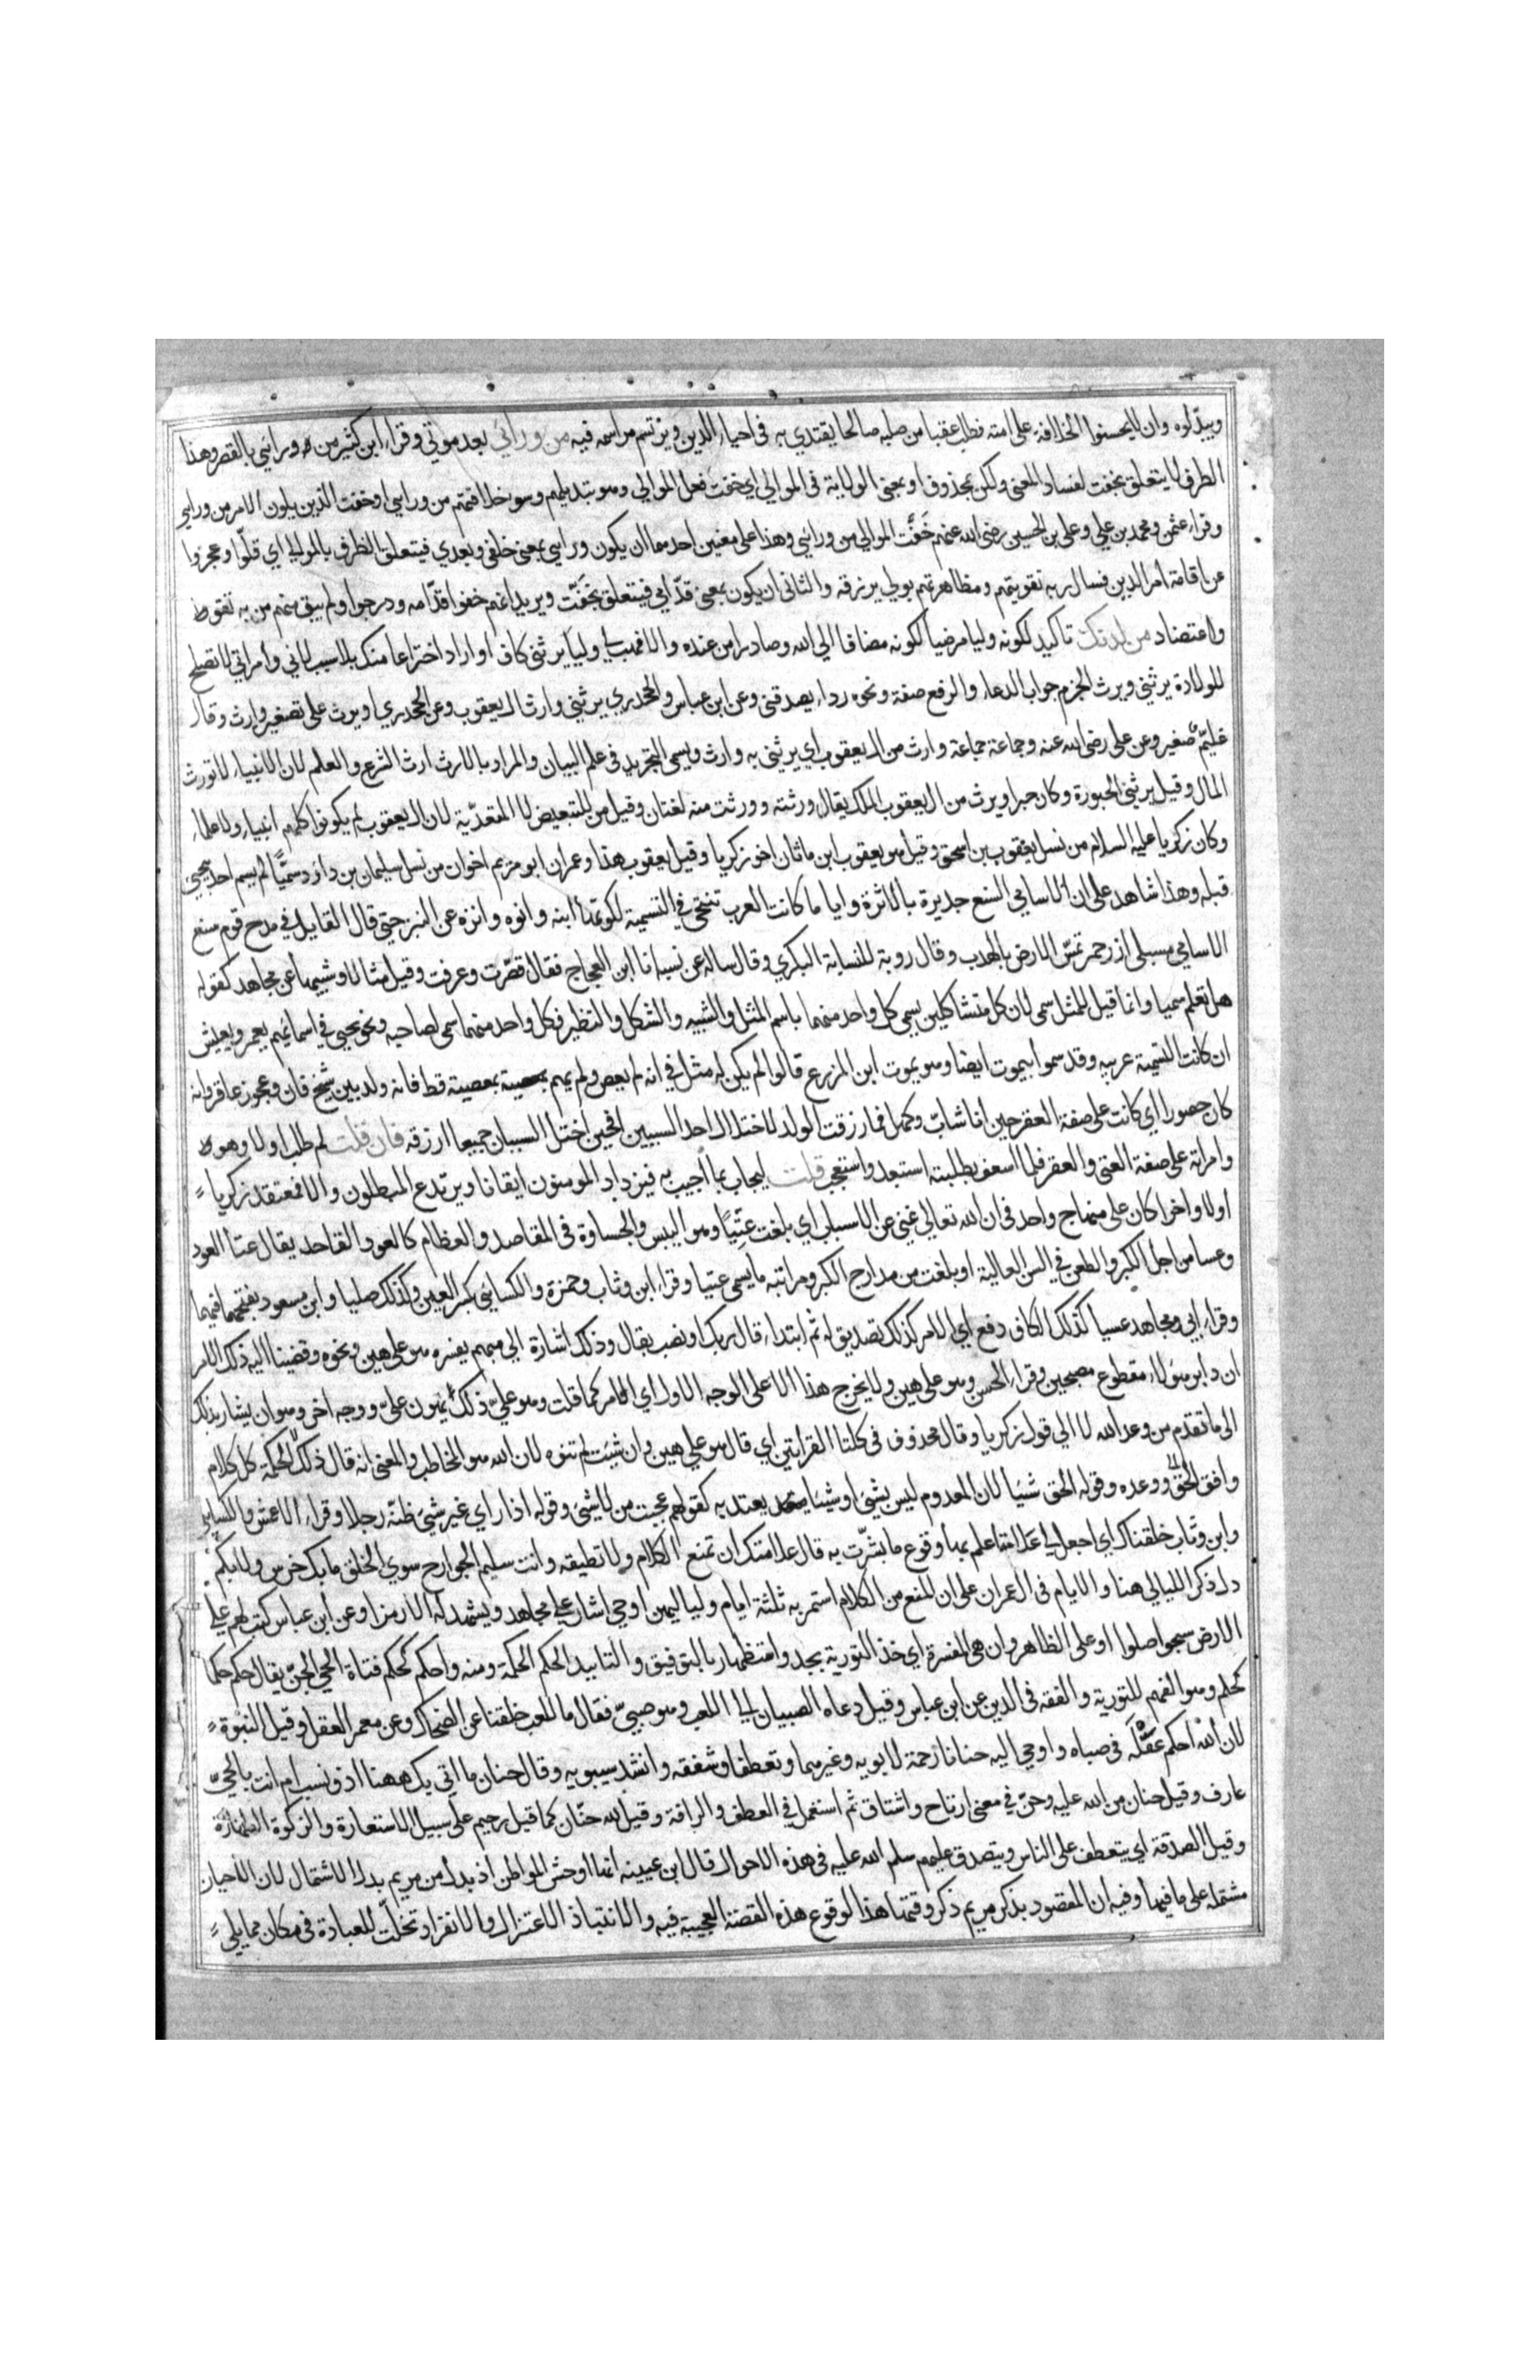 ويبدلوه وان لا يحسنوا الخلافة على امته فطلب عقبا من صلبه صالحا يقتدي به في احياء الدين ويرتسم مراسمه فيه من ورائي بعد موتي وقراء ابن كثير من ورائي بالقصر وهذا
الظرف لا يتعلق بخفت لفساد المعنى ولكن بمحذوف او بمعنى الولاية في الموالي اي خفت فعل الموالي وهو تبديلهم وسوء خلافتهم من ورائي او خفت الذين يلون الامر من ورائي
وقراء عثمن ومحمد بن علي وعلي بن الحسين رضى الله عنهم خَفَّت الموالي من ورائي وهذا على معنيين احدهما ان يكون ورائي بمعنى خلفي وبعدي فيتعلق الظرف بالموالي اي قلّوا وعجزوا
عن اقامة امر الدين فسال ربه تقويتهم ومظاهرتهم بولي يرزقه والثاني ان يكون بمعنى قدّامي فيتعلق بخَفَّت ويريد انهم خفوا قدّامه ودرجوا ولم يبق منهم من به تقو
واعتضاد من لدنك تاكيد لكونه وليا مرضيا لكونه مضافا الي الله وصادرا من عنده والا فهب لي وليا يرثني كاف او اراد اختراعا منك بلا سبب لاني وامراتي لا تصلح
للولادة يرثني ويرث الجزم جواب الدعاء والرفع صفة ونحوه رداء يصدقنى وعن ابن عباس والجحدري يرثني وارث ال يعقوب وعن الجحدري اويرث على تصغير وارث وقال
غليّم صغير وعن على رضى الله عنه وجماعة وارث من ال يعقوب اي يرثنى به وارث ويسمى التجريد في علم البيان والمراد بالارث ارث الشرع والعلم لان الانبياء لا تورث
المال وقيل يرثني الحبورة وكان حبرا ويرث من ال يعقوب الملك يقال ورثته وورثت منه لغتان وقيل من للتبعيض لا للتعدّية لان ال يعقوب لم يكونوا كلهم انبياء ولا علماء
وكان زكريا عليه السلام من نسل يعقوب بن اسحق وقيل هو يعقوب ابن ماثان اخو زكريا وقيل يعقوب هذا وعمران ابو مريم اخوان من نسل سليمان بن داود سميّا لم يسم احد بيحيي
قبله وهذا شاهد على ان الاسامي السنع جديرة بالاثرة واياها كانت العرب تنتحي في التسمية لكونها انبه وانوه وانزه عن النبز حتى قال القايل في مدح قوم سنع
الاسامي مسبلى ازر حمر تمسّ الارض بالهدب وقال روبة للنسابة البكري وقال ساله عن نسبه انا ابن العجاج فقال قصّرت وعرفت وقيل مثالا وشبيها عن مجاهد كقوله
هل تعلم سميا وانما قيل للمثل سمى لان كل متشاكلين يسمى كل واحد منهما باسم المثل والشبيه والشكل والنظير فكل واحد منهما سمى لصاحبه ونحو يحيي في اسمائهم يعمر ويعيش
ان كانت التسمية عربيه وقد سموا بيموت ايضا وهو يموت ابن المزرع قالوا لم يكن له مثل في انه لم يعص ولم يهم بمعصية قط فانه ولد بين شيخ فان وعجوز عاقر وانه
كان حصورا اي كانت على صفة العقر حين انا شابّ وكهل فما رزقت الولد لاختلال احد السببين افحين اختل السببان جميعا ارزقه فان قلت لم طلب اولا وهو
وامراته على صفة العتى والعقر فلما اسعف بطلبته استبعد واستعجب قلت ليجاب بما اجيب به فيزداد المومنون ايقانا ويرتدع المبطلون والا فمعتقد زكريا
اولا واخرا كان على منهاج واحد في ان الله تعالي غني عن الاسباب اي بلغت عتيّا وهو اليبس والجساوة في المفاصد والعظام كالعود القاحل يقال عتا العود
وعسا من اجل الكبر والطعن في السن العالية او بلغت من مدارج الكبر ومراتبه ما يسمى عتيا وقراء ابن وثاب وحمزة والكسائي بكسر العين وكذلك صليا وابن مسعود بفتحهما فيهما
وقراء ابي ومجاهد عسيا كذلك الكاف رفع اي الامر كذلك تصديق له ثم ابتداء قال ربك او نصب بقال وذلك اشارة الي مبهم يفسره هو على هين ونحوه وقضينا اليه ذلك الامر
ان دابر هؤلاء مقطوع مصبحين وقراء الحسن وهو على هين ولا يخرج هذا الا على الوجه الاول اي الامر كما قلت وهو عليّ ذلك يهون عليّ ووجه اخر وهو ان يشار بذلك
الى ما تقدم من وعد الله لا الي قول زكريا وقال محذوف في كلتا القرايتين اي قال هو على هين وان شئت لم تنوه لان الله هو المخاطب والمعنى انه قال ذلك كل كلام
وافق الحق ووعده وقوله الحق شيا لان المعدوم ليس بشئ او شيئا يعتد به كقولهم عجبت من لا شئ وقوله اذا راي غير شئ ظنّه رجلا وقراء الاعمش والكسائي
وابن وثّاب خلقناك اي اجعل لي علامة اعلم بها وقوع ما بشّرت به قال علامتك ان تمنع الكلام ولا تطيقه وانت سليم الجوارح سوي الخلق ما بك خرس ولا بكم
دل ذكر الليالي هنا والايام في ال عمران على ان المنع من الكلام استمر به ثلثة ايام ولياليهن اوحي اشار عن مجاهد ويشهد له الا رمزا وعن ابن عباس كتب لهم على
الارض سبحوا صلوا او على الظاهر وان هي المفسرة اي خذ التورية بجد واستظهار بالتوفيق والتاييد الحكم الحكمة ومنه واحكم كحكم فتاة الحي الجنّ يقال حكم حكما
كحلم وهو الفهم للتورية والفقه في الدين عن ابن عباس وقيل دعاه الصبيان الي اللعب وهو صبيّ فقال ما للعب خلقنا عن الضحاك وعن معمر العقل وقيل النبوة
لان الله احكم عَقْلَه في صباه واوحي اليه حنانا رحمة لابويه وغيرهما وتعطفا وشفقه وانشد سيبويه وقال حنان ما اتي بك ههنا اذو نسب ام انت بالحيّ
عارف وقيل حنان من الله عليه وحنّ في معنى ارتاح واشتاق ثم استعمل في العطف والرافة وقيل لله حنّان كما قيل رحيم على سبيل الاستعارة والزكوة الطهارة
وقيل الصدقة اي يتعطف على الناس ويتصدق عليهم سلم الله عليه في هذه الاحوال قال ابن عيينه انها اوحش المواطن اذ بدل من مريم بدل الاشتمال لان الاحيان
مشتملة على ما فيها وفيه ان المقصود بذكر مريم ذكر وقتها هذا لوقوع هذه القصة العجيبة فيه والانتباذ الاعتزال والانفراد تخلّت للعبادة في مكان مما يلي